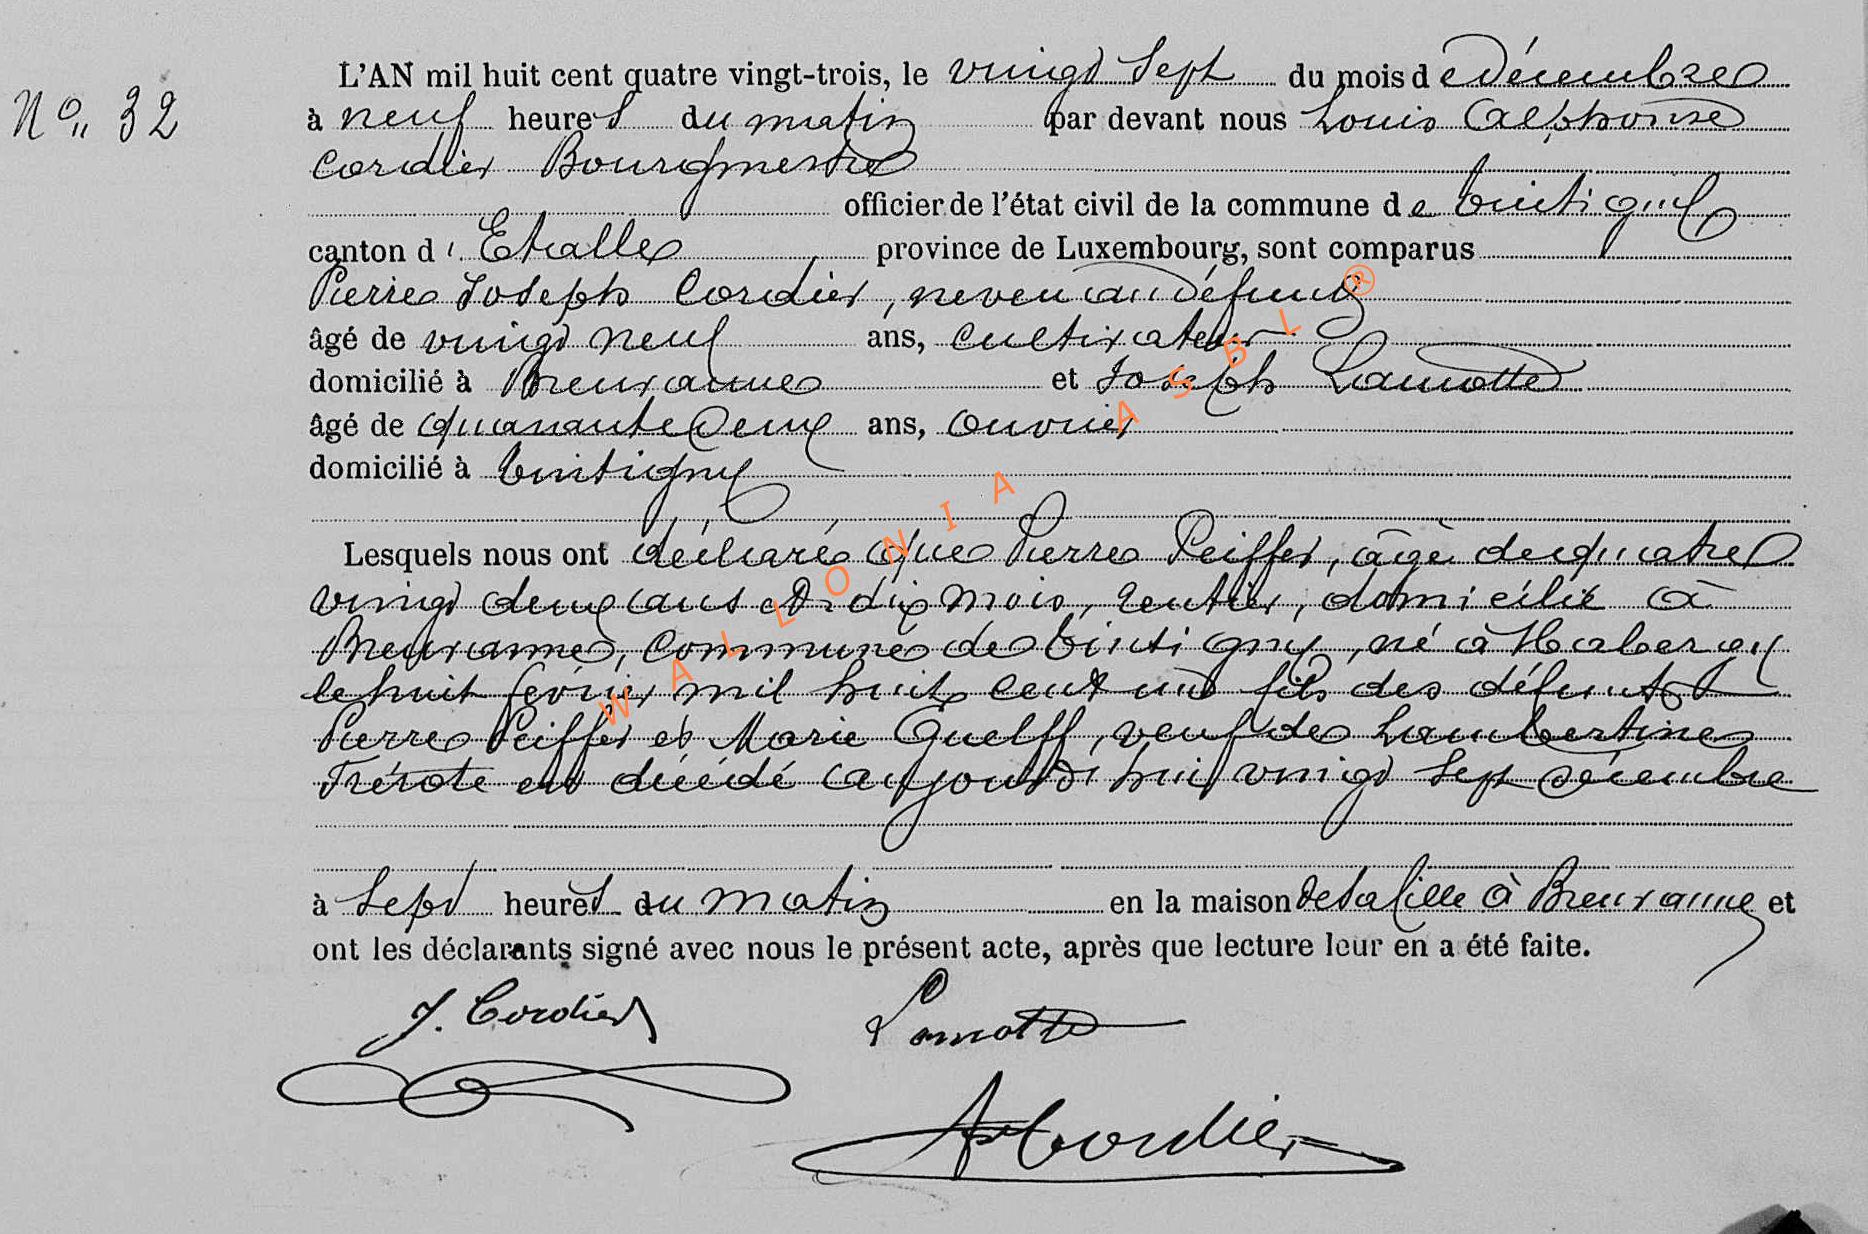 N° 32
L'AN mil huit cent quatre vingt-trois, le vingt sept du mois de décembre
à neuf heures du matin par devant nous Louis Alphonse
Cordier Bourgmestre
officier de l'état civil de la commune de Tintigny
canton d'Etalle province de Luxembourg, sont comparus
Pierre Joseph Cordier, neveu au défunt
âgé de vingt neuf ans, cultivateur
domicilié à Breuvanne et Joseph Lamotte
âgé de quarante deux ans, ouvrier
domicilié à Tintigny
Lesquels nous ont déclaré que Pierre Peiffer, âgé de quatre
vingt deux ans et dix mois, rentier, domicilié à
Breuvanne, commune de Tintigny, né à Habergy
le huit févrir mil huit cent un fils des défunts
Pierre Peiffer et Marie Guelff, veuf de Lambertine
est décédé aujourd'hui vingt sept décembre
à sept heures du matin en la maison de sa fille à Breuvanne et
ont les déclarants signé avec nous le présent acte, après que lecture leur en a été faite.
J. Cordier Lamotte
A Cordier
WALLONIA ASBL ®